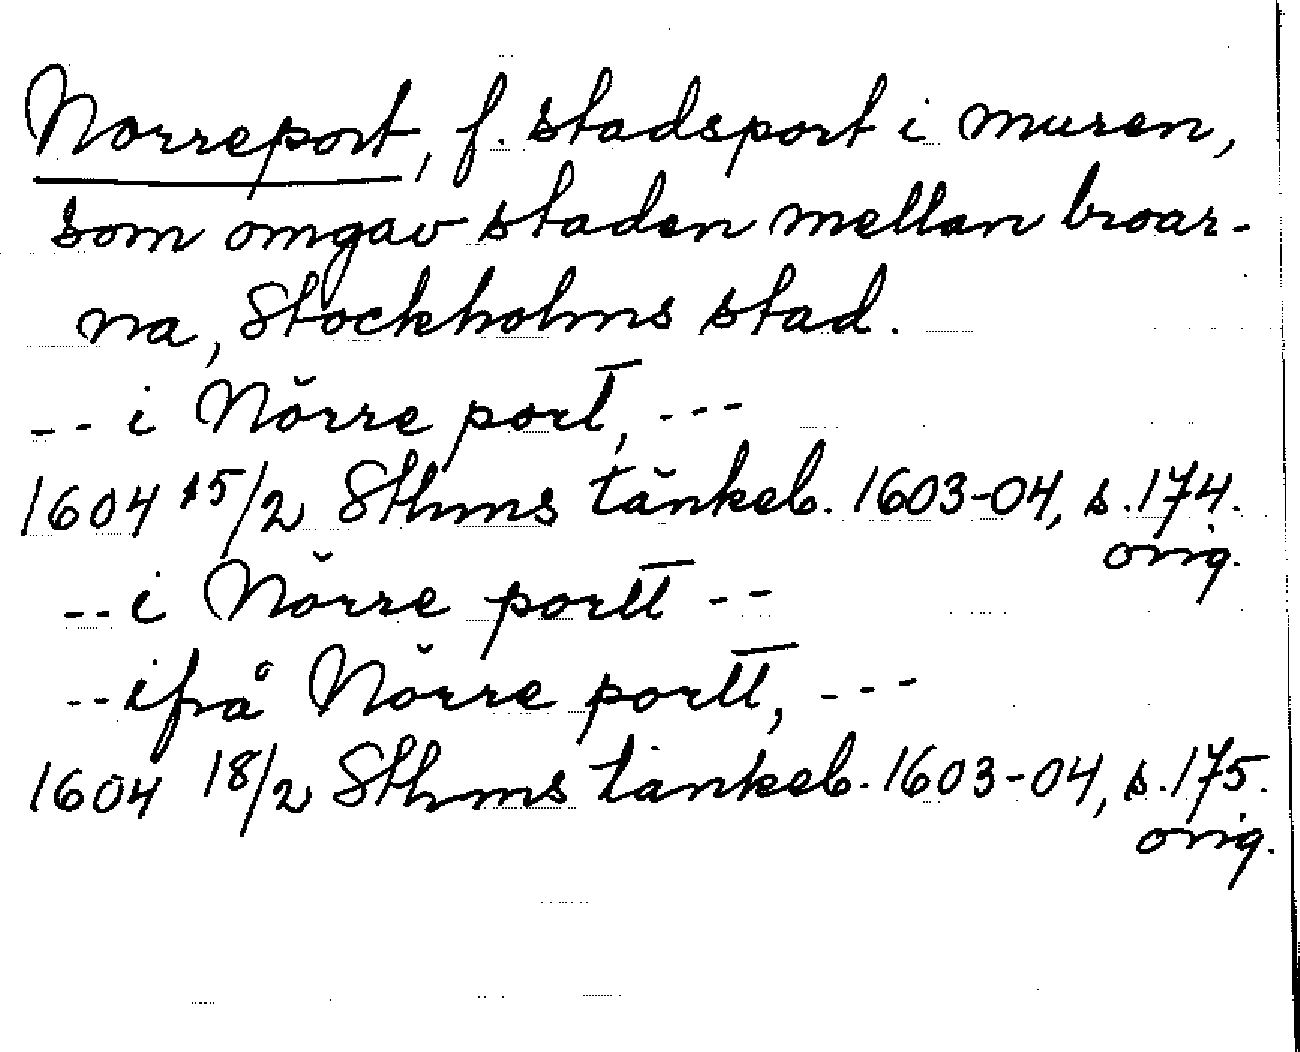 Norreport, f. stadsport i muren,
som omgav staden mellan broar-
na, Stockholms stad.
-- i Nŏrre port, ---
1604 15/2 Sthms tänkeb. 1603-04, s. 174.
orig.
-- i Nŏrre portt --
-- ifrå Nŏrre portt, ---
1604 18/2 Sthms tänkeb. 1603-04, s. 175.
orig.